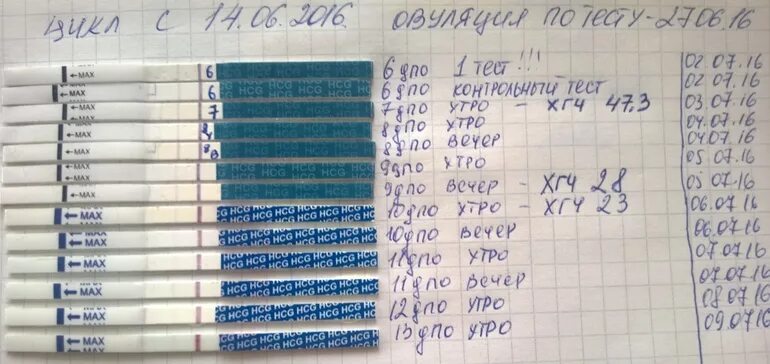 ЦИКЛ С 14.06.2016. ОВУЛЯЦИЯ ПО ТЕСТУ - 27.06.16
←MAX 6 HCG HCG HCG HCG 6 дпо 1 ТЕСТ!!! 02.07.16
←MAX 6 HCG HCG HCG HCG 6 дпо КОНТРОЛЬНЫЙ ТЕСТ 02.07.16
←MAX 7 7 дпо УТРО - ХГЧ 47,3 03.07.16
←MAX 8у 8 дпо УТРО 04.07.16
←MAX 8в HCG HCG HCG HCG 8 дпо ВЕЧЕР 04.07.16
←MAX HCG HCG HCG HCG 9 дпо УТРО 05.07.16
←MAX 9 дпо ВЕЧЕР - ХГЧ 28 05.07.16
←MAX HCG HCG HCG HCG 10 дпо УТРО - ХГЧ 23 06.07.16
←MAX HCG HCG HCG HCG 10 дпо ВЕЧЕР 06.07.16
←MAX HCG HCG HCG HCG 11 дпо УТРО 07.07.16
←MAX HCG HCG HCG HCG 11 дпо ВЕЧЕР 07.07.16
←MAX HCG HCG HCG HCG 12 дпо УТРО 08.07.16
←MAX HCG HCG HCG HCG 13 дпо УТРО 09.07.16